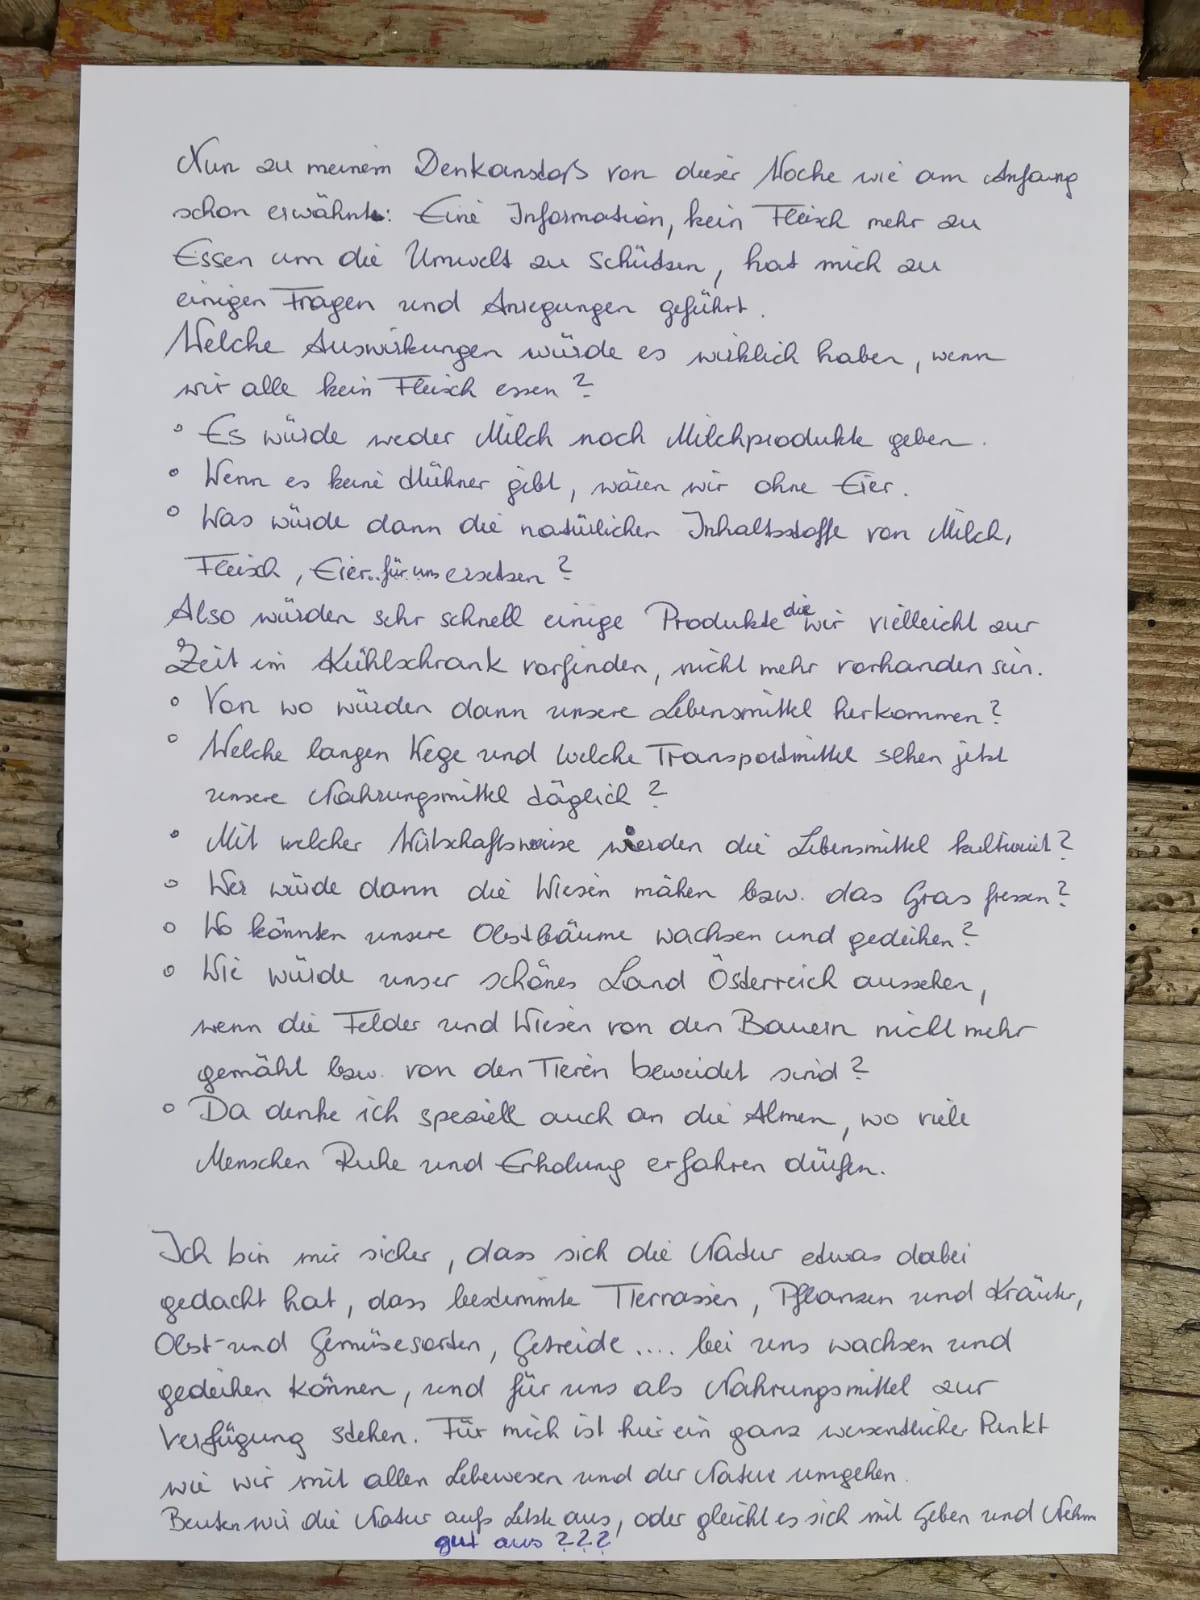 Nun zu meinem Denkanstoß von dieser Woche wie am Anfang
schon erwähnt: Eine Information, kein Fleisch mehr zu
Essen um die Umwelt zu schützen, hat mich zu
einigen Fragen und Anregungen geführt.
Welche Auswirkungen würde es wirklich haben, wenn
wir alle kein Fleisch essen?
° Es würde weder Milch noch Milchprodukte geben.
° Wenn es keine Hühner gibt, wären wir ohne Eier.
° Was würde dann die natürlichen Inhaltsstoffe von Milch,
Fleisch, Eier.. für uns ersetzen?
Also würden sehr schnell einige Produkte die wir vielleicht zur
Zeit im Kühlschrank vorfinden, nicht mehr vorhanden sein.
° Von wo würden dann unsere Lebensmittel herkommen?
° Welche langen Wege und welche Transportmittel sehen jetzt
unsere Nahrungsmittel täglich?
° Mit welcher Wirtschaftsweise werden die Lebensmittel kultiviert?
° Wer würde dann die Wiesen mähen bzw. das Gras fressen?
° Wo könnten unsere Obstbäume wachsen und gedeihen?
° Wie würde unser schönes Land Österreich aussehen,
wenn die Felder und Wiesen von den Bauern nicht mehr
gemäht bzw. von den Tieren beweidet sind?
° Da denke ich speziell auch an die Almen, wo viele
Menschen Ruhe und Erholung erfahren dürfen.
Ich bin mir sicher, dass sich die Natur etwas dabei
gedacht hat, dass bestimmte Tierrassen, Pflanzen und Kräuter,
Obst- und Gemüsesorten, Getreide.... bei uns wachsen und
gedeihen können, und für uns als Nahrungsmittel zur
Verfügung stehen. Für mich ist hier ein ganz wesentlicher Punkt
wie wir mit allen Lebewesen und der Natur umgehen.
Beuten wir die Natur aufs Letzte aus, oder gleicht es sich mit Geben und Nehm
gut aus ???